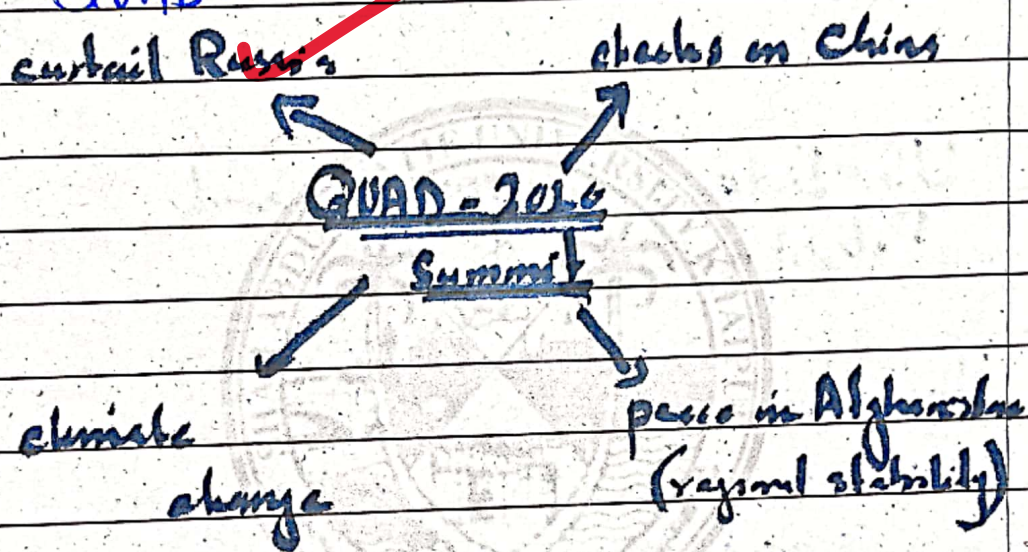 curtail Russia
checks on China
QUAD - 2020
Summit
climate
change
peace in Afghanistan
(regional stability)